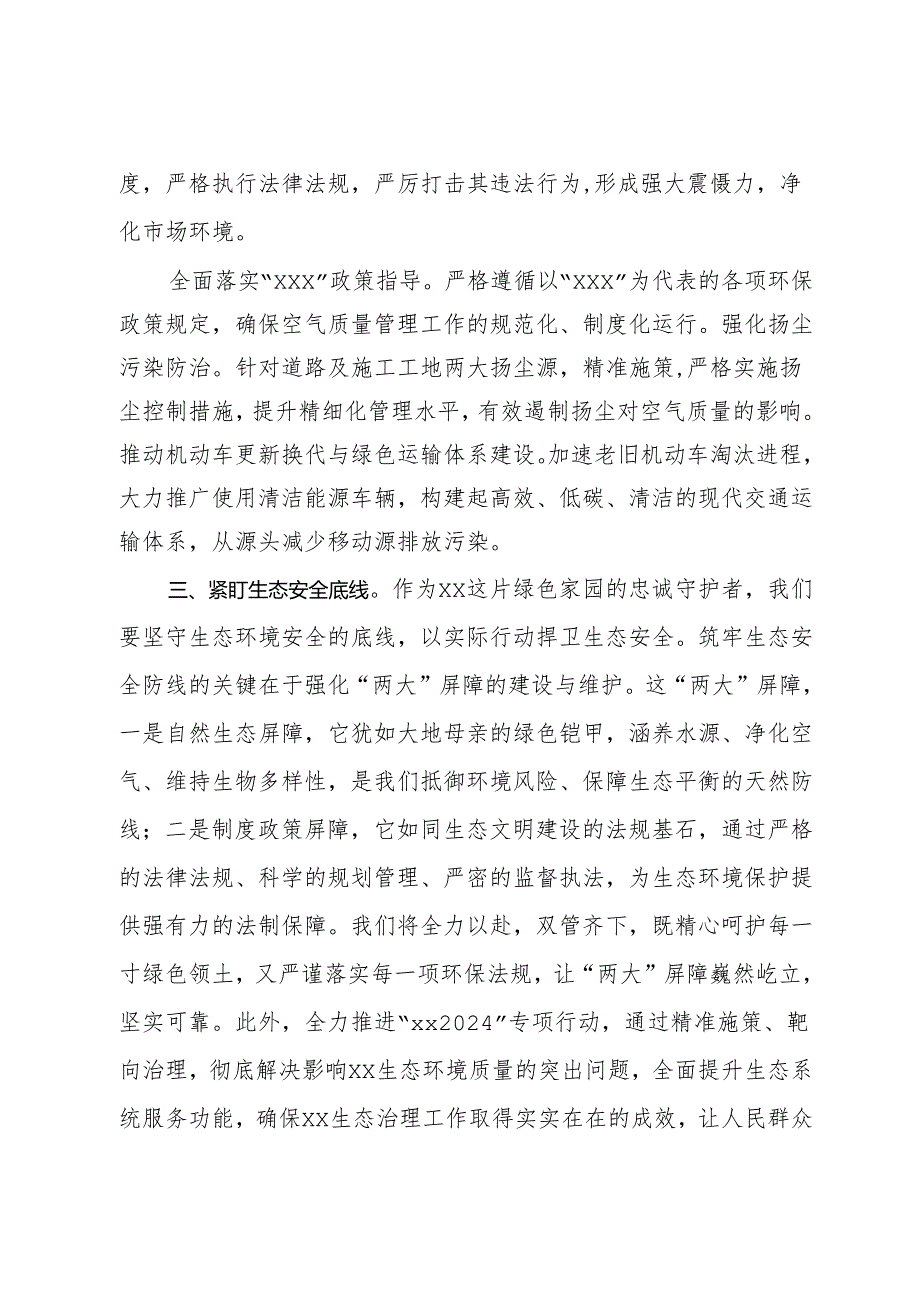 度，严格执行法律法规，严厉打击其违法行为,形成强大震慑力，净
化市场环境。
全面落实“XXX”政策指导。严格遵循以“XXX”为代表的各项环保
政策规定，确保空气质量管理工作的规范化、制度化运行。强化扬尘
污染防治。针对道路及施工工地两大扬尘源，精准施策,严格实施扬
尘控制措施，提升精细化管理水平，有效遏制扬尘对空气质量的影响。
推动机动车更新换代与绿色运输体系建设。加速老旧机动车淘汰进程，
大力推广使用清洁能源车辆，构建起高效、低碳、清洁的现代交通运
输体系，从源头减少移动源排放污染。
三、紧盯生态安全底线。作为XX这片绿色家园的忠诚守护者，我们
要坚守生态环境安全的底线，以实际行动捍卫生态安全。筑牢生态安
全防线的关键在于强化“两大”屏障的建设与维护。这“两大”屏障，
一是自然生态屏障，它犹如大地母亲的绿色铠甲，涵养水源、净化空
气、维持生物多样性，是我们抵御环境风险、保障生态平衡的天然防
线；二是制度政策屏障，它如同生态文明建设的法规基石，通过严格
的法律法规、科学的规划管理、严密的监督执法，为生态环境保护提
供强有力的法制保障。我们将全力以赴，双管齐下，既精心呵护每一
寸绿色领土，又严谨落实每一项环保法规，让“两大”屏障巍然屹立，
坚实可靠。此外，全力推进“xx2024”专项行动，通过精准施策、靶
向治理，彻底解决影响XX生态环境质量的突出问题，全面提升生态系
统服务功能，确保XX生态治理工作取得实实在在的成效，让人民群众